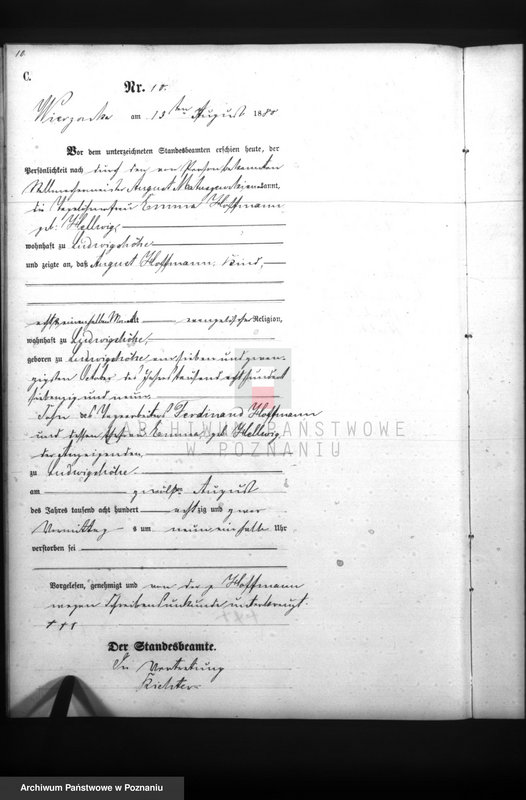 10.
C.
Nr. 10.
am 13ten August 1880
Vor dem unterzeichneten Standesbeamten erschien heute, der
Persönlichkeit nach durch den von Person bekannten
Stellmachermeister August kannt,
die Tagelöhnerfrau Emma Hoffmann
geb. Hellwig,
wohnhaft zu Ludwigshöhe
und zeigte an, daß August Hoffmann, Kind,
alt evangelischer Religion,
wohnhaft zu Ludwigshöhe,
geboren zu Ludwigshöhe, am sieben und zwan-
zigsten October des Jahres tausend acht hundert
siebenzig und neun,
Sohn des Ferdinand Hoffmann
und dessen Ehefrau Emma geb. Hellwig,
der Anzeigenden
zu Ludwigshöhe
am zwölften August
des Jahres tausend acht hundert achtzig und
Vormittags um neun einhalb Uhr
verstorben sei
Vorgelesen, genehmigt und von der p. Hoffmann
wegen Schreibensunkunde unterkreuzt.
+++
Der Standesbeamte.
In Vertretung
Richter
ARCHIWUM PAŃSTWOWE
W POZNANIU
Archiwum Państwowe w Poznaniu